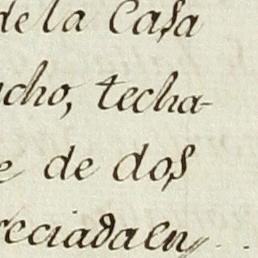 de la Casa
cho, techa-
e de dos
reciada en